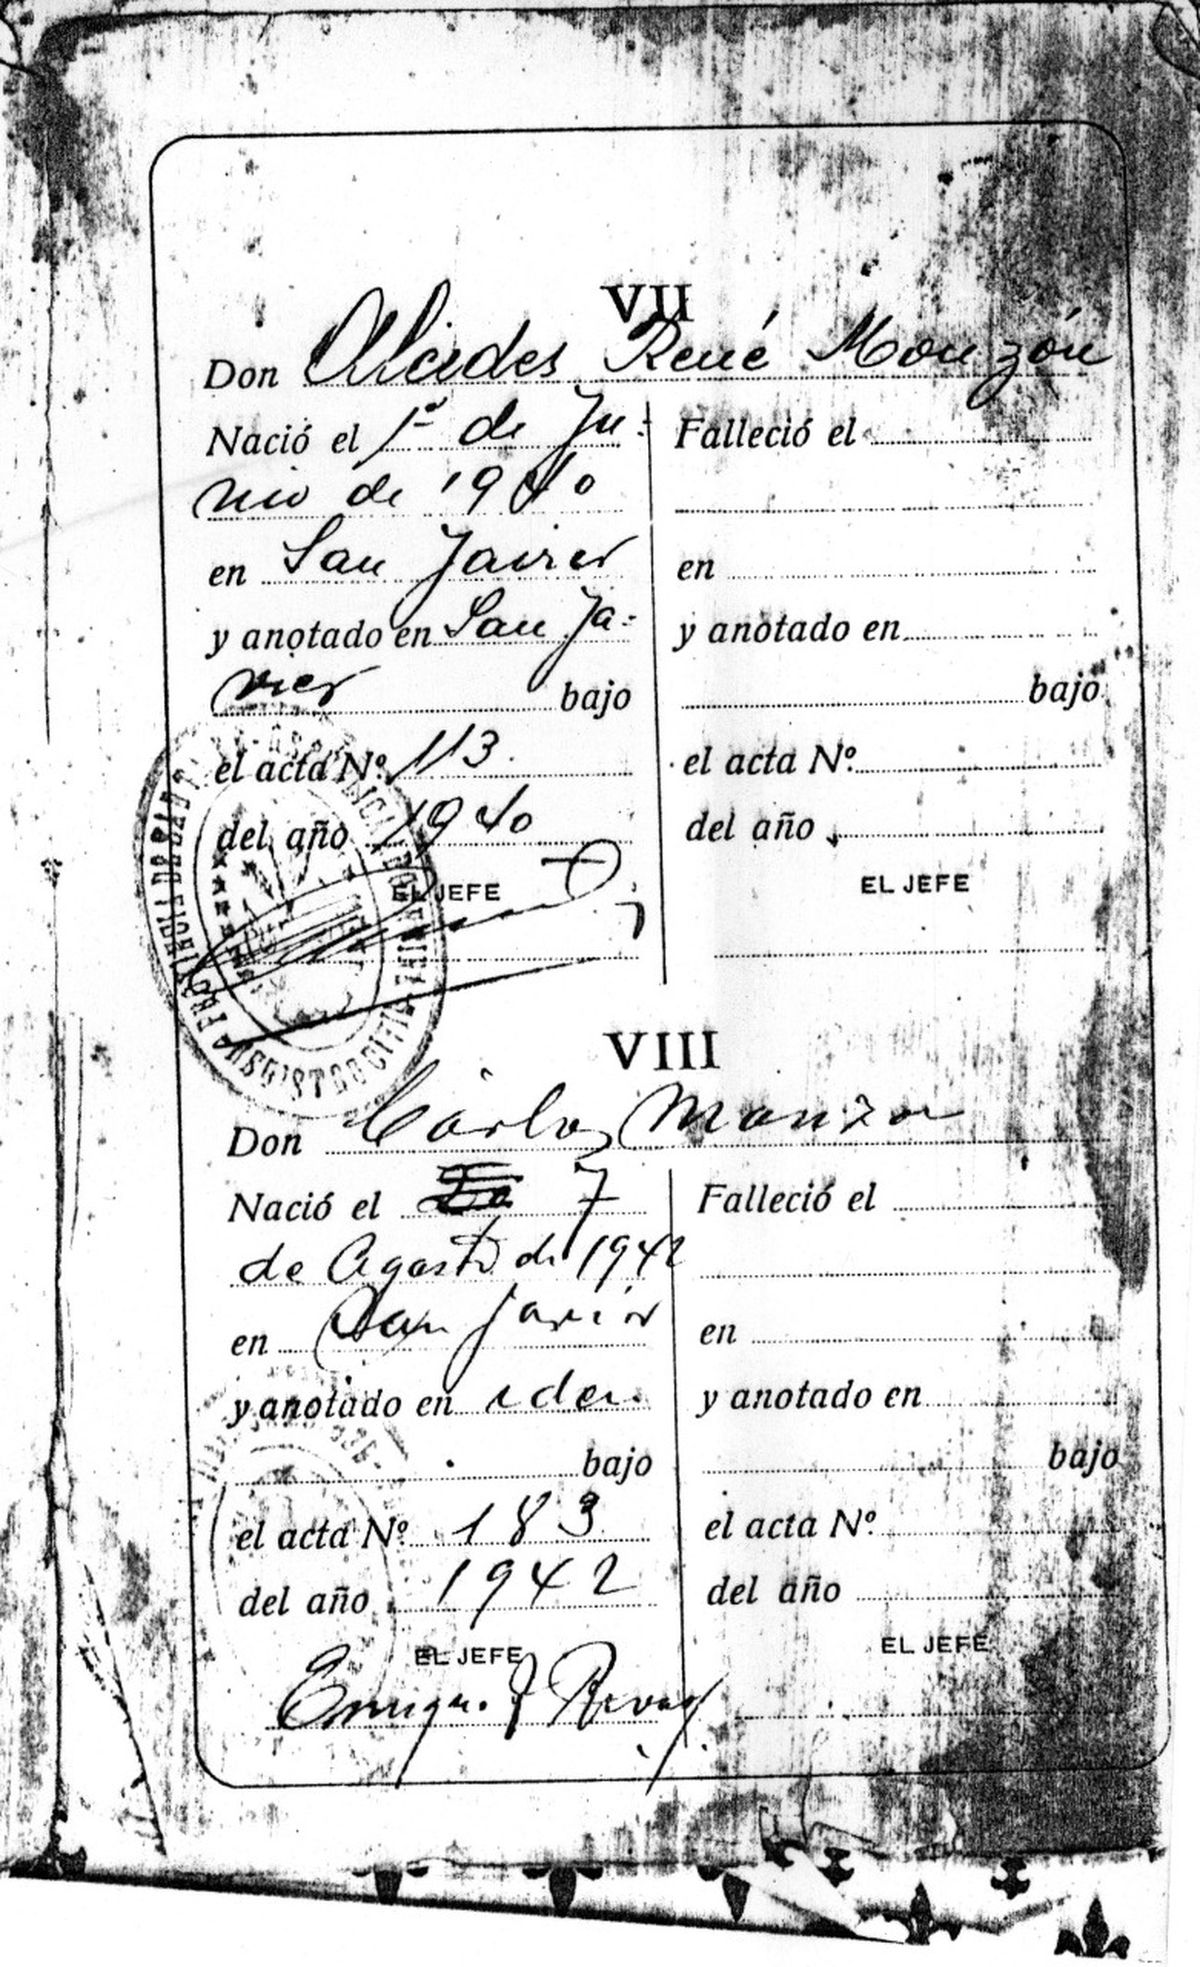 VII
Don Alcides René Monzón
Nació el 1º de Ju-
nio de 1940
en San Javier
y anotado en San Ja-
vier bajo
el acta Nº 113
del año 1940
EL JEFE
Falleció el
en
y anotado en
bajo
el acta Nº
del año
EL JEFE
REGISTRO CIVIL
VIII
Don Carlos Monzon
Nació el 7
de Agosto de 1942
en San Javier
y anotado en iden
bajo
el acta Nº 183
del año 1942
EL JEFE
Enrique
Falleció el
en
y anotado en
bajo
el acta Nº
del año
EL JEFE